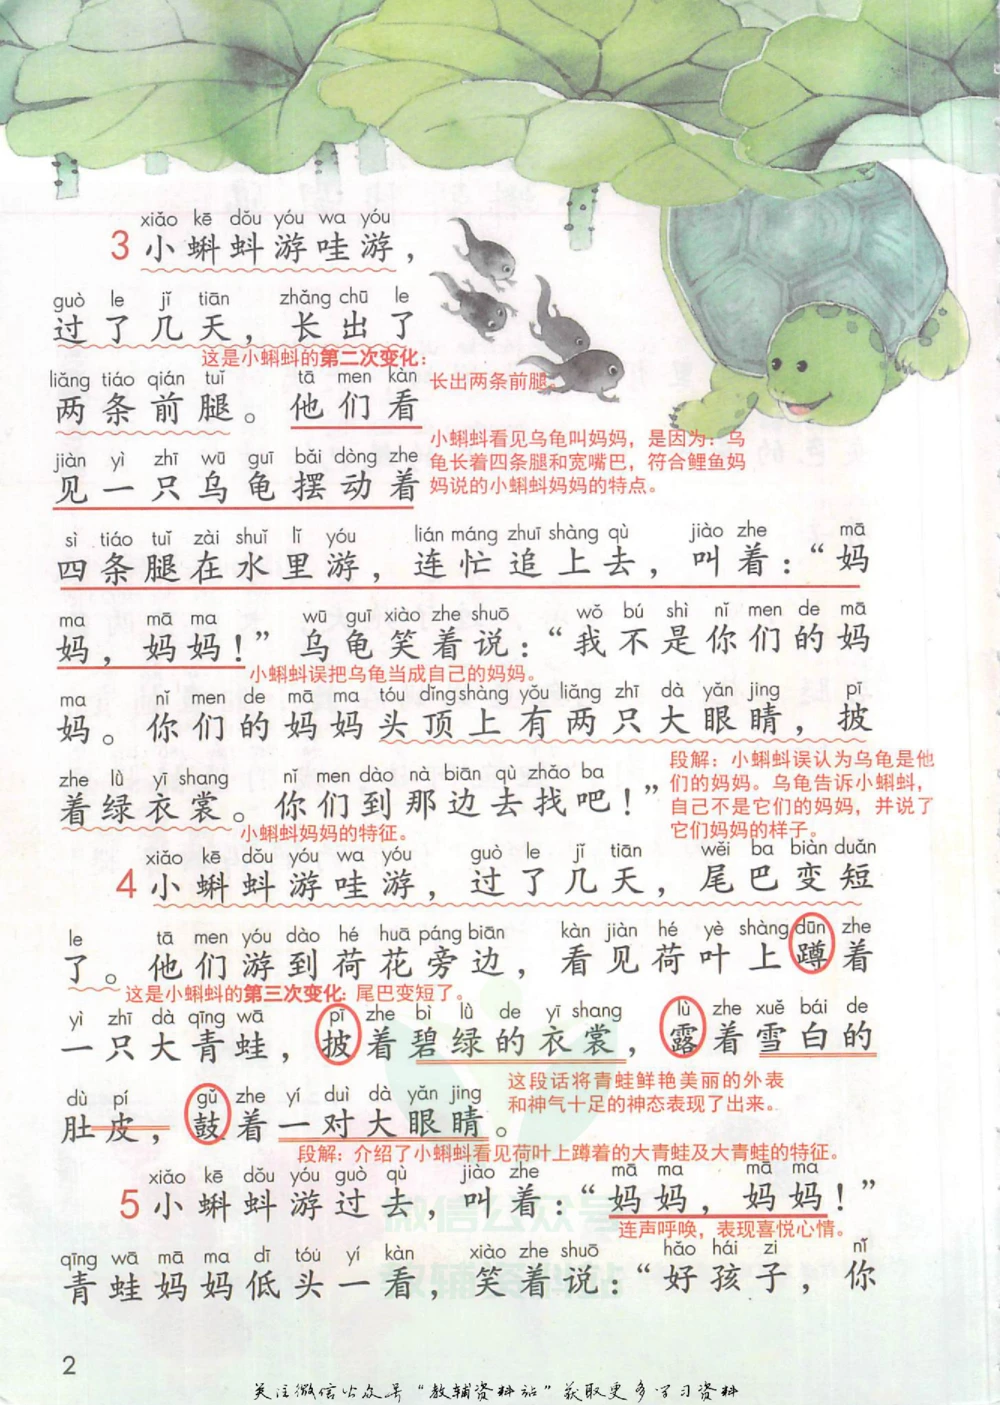 xiǎo kē dǒu yóu wa yóu
3 小蝌蚪游哇游，
guò le jǐ tiān zhǎng chū le
过了几天，长出了
这是小蝌蚪的第二次变化：
liǎng tiáo qián tuǐ tā men kàn
长出两条前腿。
两条前腿。他们看
小蝌蚪看见乌龟叫妈妈，是因为：乌
龟长着四条腿和宽嘴巴，符合鲤鱼妈
妈说的小蝌蚪妈妈的特点。
jiàn yì zhī wū guī bǎi dòng zhe
见一只乌龟摆动着
sì tiáo tuǐ zài shuǐ lǐ yóu lián máng zhuī shàng qù jiào zhe mā
四条腿在水里游，连忙追上去，叫着：“妈
ma mā ma wū guī xiào zhe shuō wǒ bú shì nǐ men de mā
妈，妈妈！”乌龟笑着说：“我不是你们的妈
小蝌蚪误把乌龟当成自己的妈妈。
ma nǐ men de mā ma tóu dǐng shàng yǒu liǎng zhī dà yǎn jing pī
妈。你们的妈妈头顶上有两只大眼睛，披
zhe lǜ yī shang nǐ men dào nà biān qù zhǎo ba
着绿衣裳。你们到那边去找吧！”
小蝌蚪妈妈的特征。
段解：小蝌蚪误认为乌龟是他
们的妈妈。乌龟告诉小蝌蚪，
自己不是它们的妈妈，并说了
它们妈妈的样子。
xiǎo kē dǒu yóu wa yóu guò le jǐ tiān wěi ba biàn duǎn
4 小蝌蚪游哇游，过了几天，尾巴变短
le tā men yóu dào hé huā páng biān kàn jiàn hé yè shàng dūn zhe
了。他们游到荷花旁边，看见荷叶上蹲着
这是小蝌蚪的第三次变化：尾巴变短了。
yì zhī dà qīng wā pī zhe bì lǜ de yī shang lù zhe xuě bái de
一只大青蛙，披着碧绿的衣裳，露着雪白的
这段话将青蛙鲜艳美丽的外表
和神气十足的神态表现了出来。
dù pí gǔ zhe yí duì dà yǎn jing
肚皮，鼓着一对大眼睛。
段解：介绍了小蝌蚪看见荷叶上蹲着的大青蛙及大青蛙的特征。
xiǎo kē dǒu yóu guò qù jiào zhe mā ma mā ma
5 小蝌蚪游过去，叫着：“妈妈，妈妈！”
连声呼唤，表现喜悦心情。
qīng wā mā ma dī tóu yí kàn xiào zhe shuō hǎo hái zi nǐ
青蛙妈妈低头一看，笑着说：“好孩子，你
微信公众号
教辅资料站
2
关注微信公众号“教辅资料站”获取更多学习资料